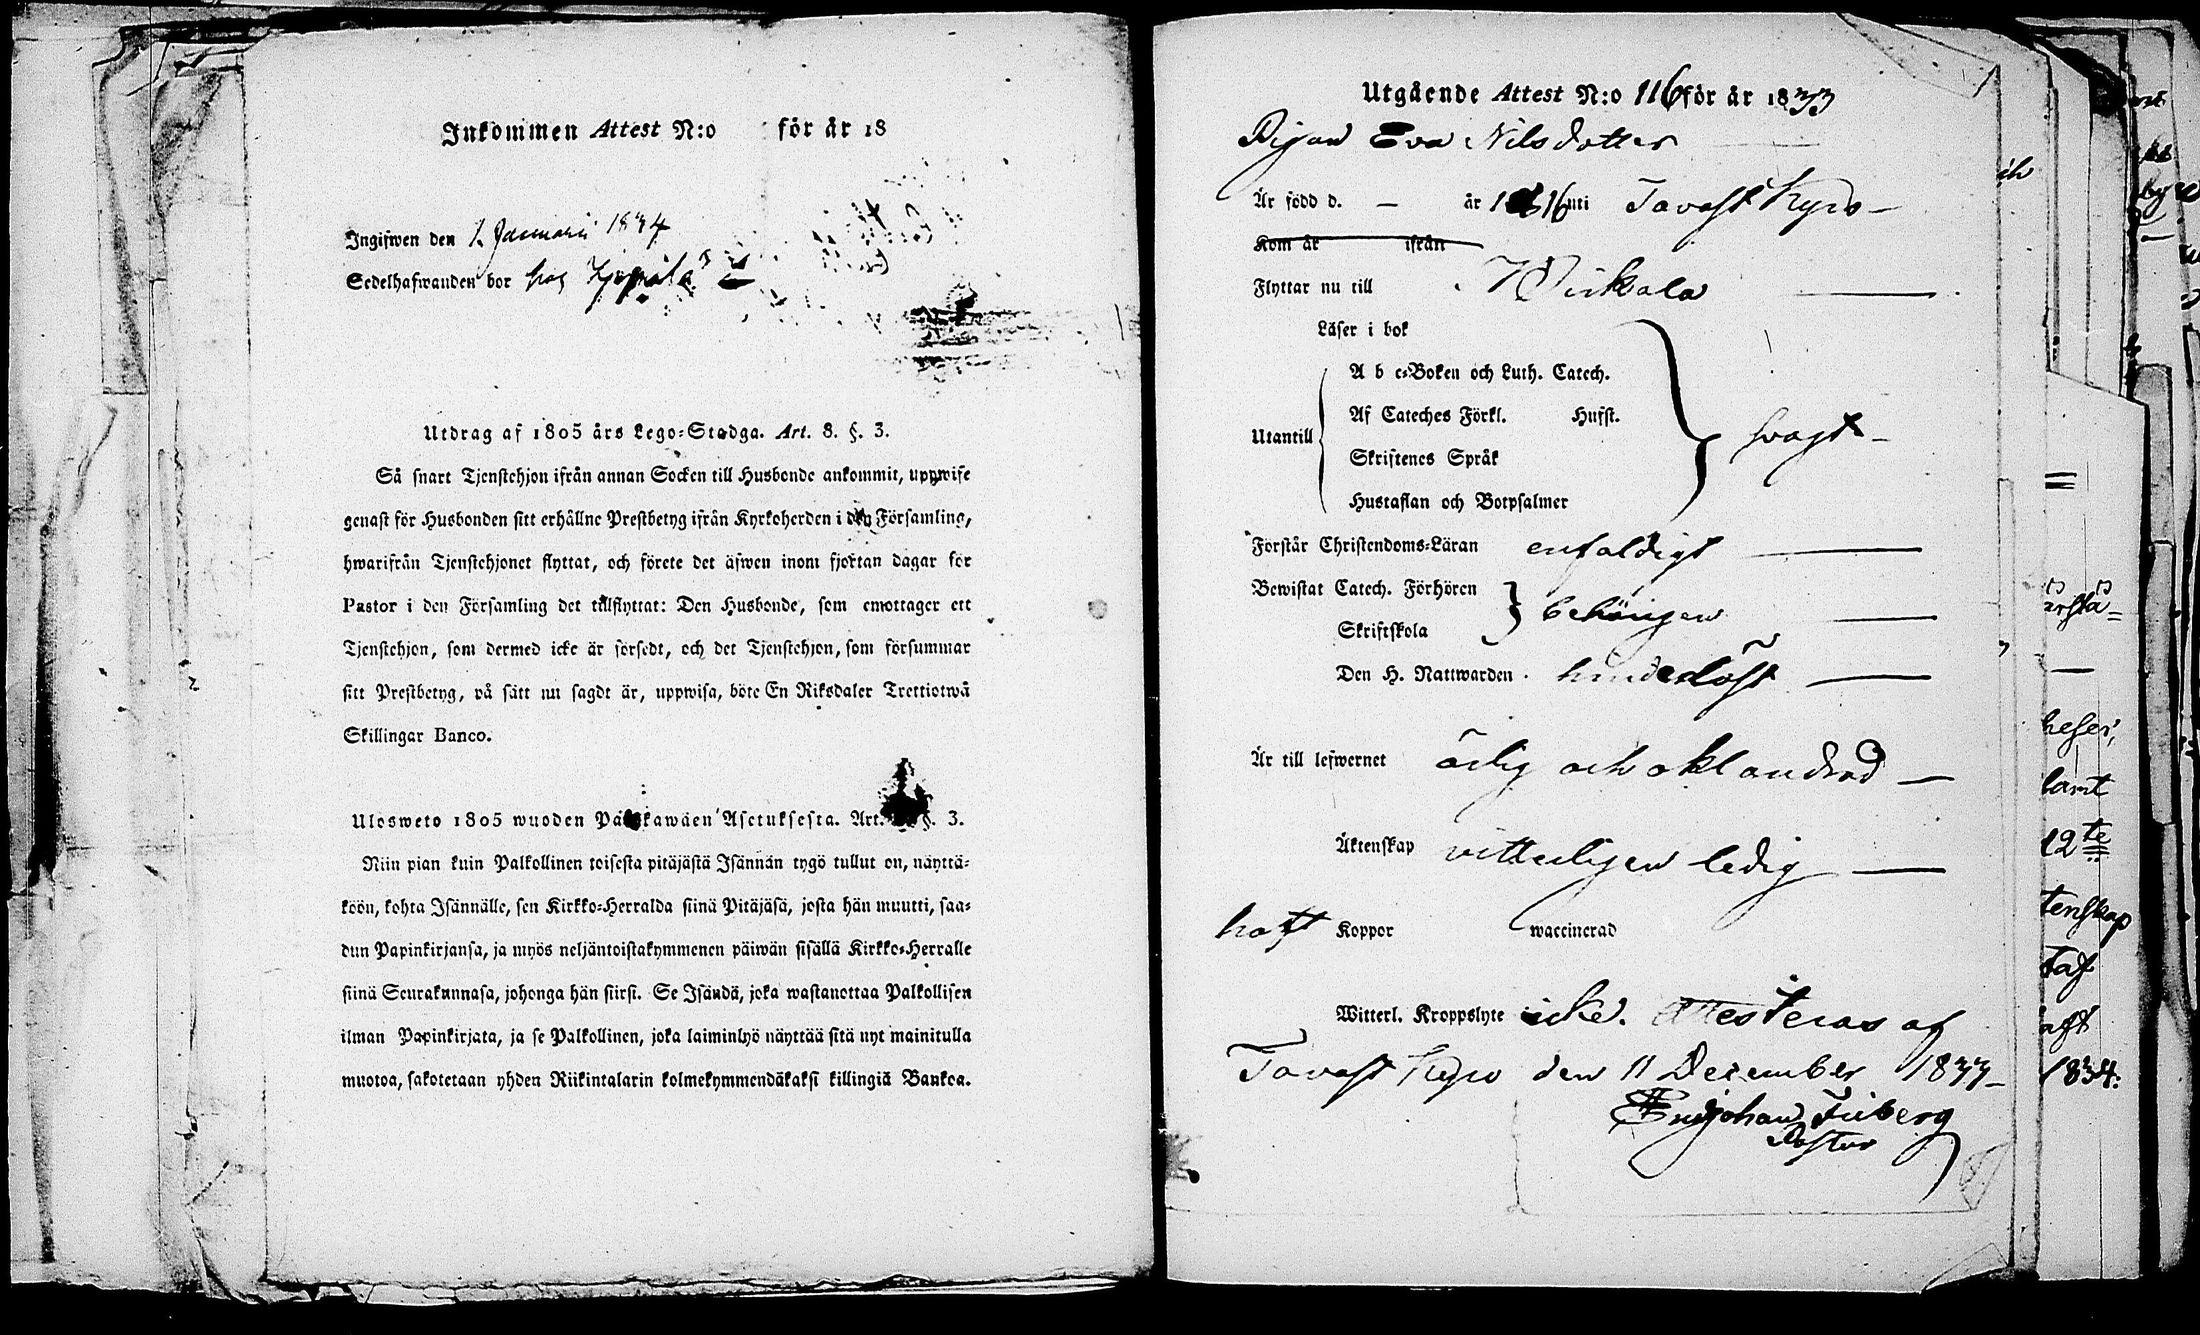 Inkommen Attest N:o för år 18
Ingifwen den 1. Januarii 1834
Sedelhafwanden bor hos
Utdrag af 1805 års Lego-Stadga. Art. 8. §. 3.
Så snart Tjenstehjon ifrån annan Socken till Husbonde ankommit, uppwise
genast för Husbonden sitt erhållne Prestbetyg ifrån Kyrkoherden i den Församling,
hwarifrån Tjenstehjonet flyttat, och förete det äfwen inom fjortan dagar för
Pastor i den Församling det tillflyttat: Den Husbonde, som emottager ett
Tjenstehjon, som dermed icke är försedt, och det Tjenstehjon, som försummar
sitt Prestbetyg, på sätt nu sagdt är, uppwisa, böte En Riksdaler Trettiotwå
Skillingar Banco.
Ulosweto 1805 wuoden Palkkawäen Asetuksesta. Art. §. 3.
Niin pian kuin Palkollinen toisesta pitäjästä Isännän tygö tullut on, näyttä-
köön, kohta Isännälle, sen Kirkko-Herralda siinä Pitäjäsä, josta hän muutti, saa-
dun Papinkirjansa, ja myös neljäntoistakymmenen päiwän sisällä Kirkko-Herralle
siinä Seurakunnasa, johonga hän siirsi. Se Isändä, joka wastanottaa Palkollisen
ilman Papinkirjata, ja se Palkollinen, joka laiminlyö näyttää sitä nyt mainitulla
muotoa, sakotetaan yhden Riikintalarin kolmekymmendäkaksi killingiä Bankoa.
Utgående Attest N:o 116 för år 1833
Pigan Eva Nilsdotter
Är född d. — år 1816 uti Tavast Kyro —
Kom år ifrån
Flyttar nu till Wirkala —
Läser i bok
A b c-Boken och Luth. Catech.
Af Cateches Förkl. Hufst.
Utantill svagt —
Skriftenes Språk
Hustaflan och Botpsalmer
Förstår Christendoms-Läran enfaldigt —
Bewistat Catech. Förhören
behörigen —
Skriftskola
Den H. Nattwarden hinderlöst —
Är till lefwernet ärlig och oklandrad —
Äktenskap vitterligen ledig —
haft Koppor waccinerad
Witterl. Kroppslyte icke. Attesteras af
Tavast Kyro den 11 December 1833 —
Johan Friberg
Pastor
12te
1834.